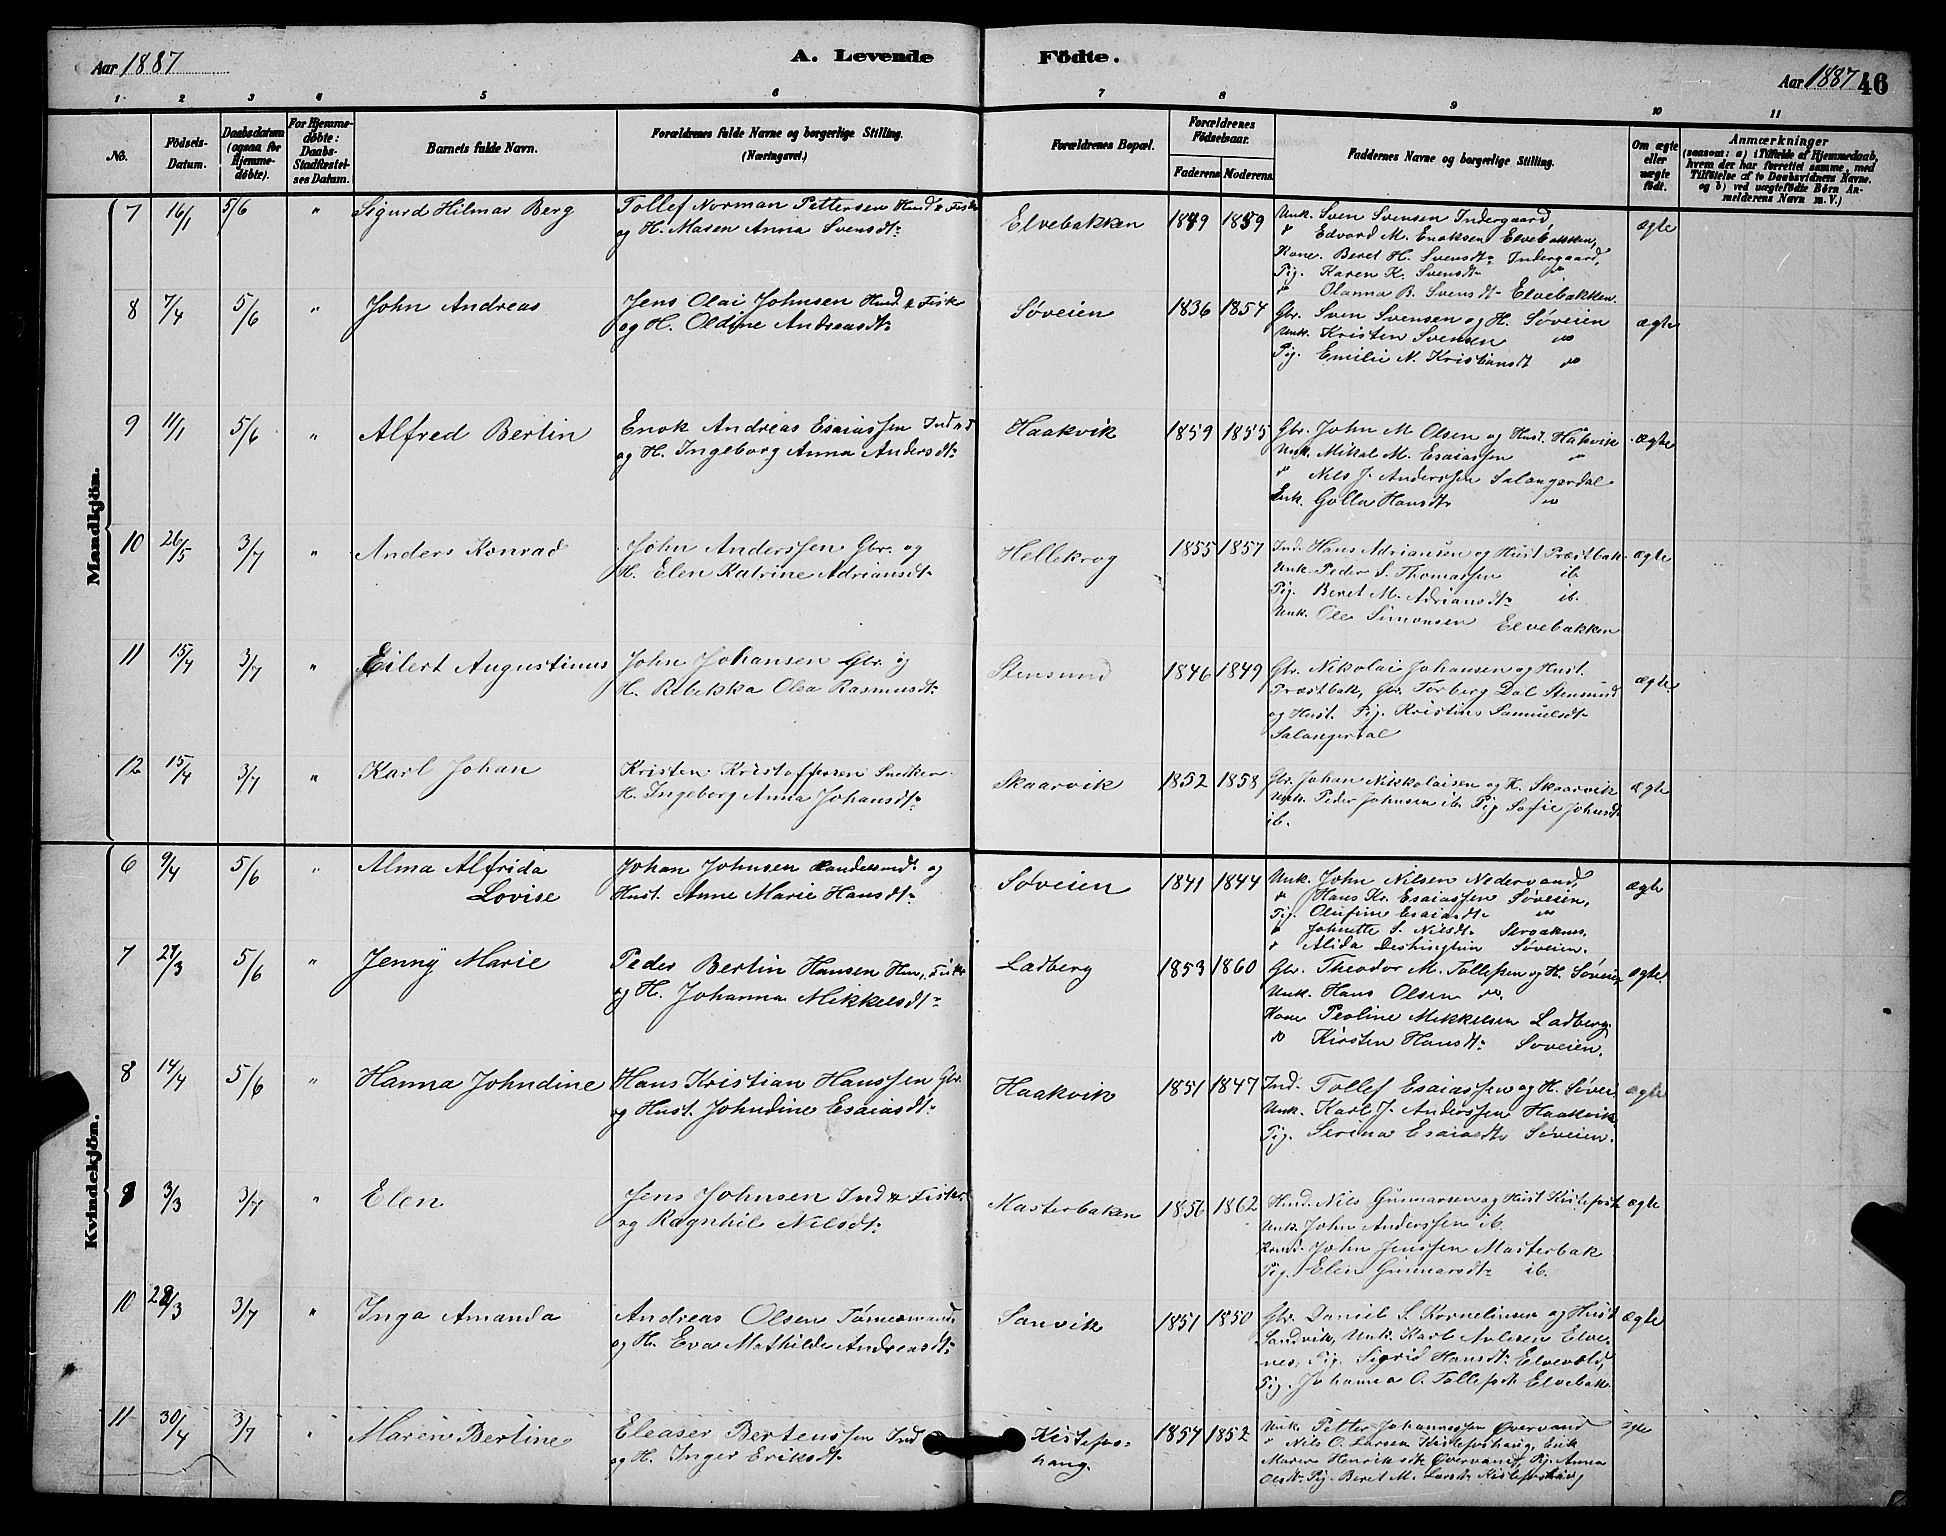 Aar 1887
A. Levende Födte.
Aar 1887 46
1 2 3 4 5 6 7 8 9 10 11
No.
Födsels-
Datum.
Daabsdatum
(ogsaa for
Hjemme-
døbte).
For Hjemme-
døbte:
Daabs-
Stadfæstel-
ses Datum.
Barnets fulde Navn.
Forældrenes fulde Navne og borgerlige Stilling.
(Næringsvei.)
Forældrenes Bopæl.
Forældrenes
Födselsaar.
Faderens Moderens
Faddernes Navne og borgerlige Stilling.
Om ægte
eller
uægte
födt.
Anmærkninger
(saasom: a) i Tilfælde af Hjemmedaab,
hvem der har forrettet samme, med
Tilföielse af to Daabsvidners Navne,
og b) ved uægtefödte Börn An-
melderens Navn m. V.)
Mandkjön.
7 16/1 5/6 " Sigurd Hilmar Berg
Tollef Norman Pettersen Husd & Fisk
og H. Maren Anna Svensdt:
Elvebakken 1849 1859
Unk. Sven Svensen Indergaard,
" Edvard M. Enoksen Elvebakken,
Kone. Beret H. Svensdt: Indergaard,
Pig. Karen K. Svensdt "
" Olanna B. Svensdt- Elvebakken
ægte
8 7/4 5/6 " John Andreas
Jens Olai Johnsen Husd & Fisk
og H. Oldine Andreasdt:
Søveien 1836 1854
Gbr. Sven Svensen og H. Søveien
Unk. Kristen Svensen "
Pig. Emilie N. Kristiansdt "
ægte
9 11/1 5/6 " Alfred Bertin
Enok Andreas Esaiassen Ind & F
og H. Ingeborg Anna Andersdt:
Haakvik 1859 1855
Gbr. John M Olsen og Hust. Håkvik
Unk. Mikal M. Esaiassen "
" Nils J. Anderssen Salangerdal
Enk. Golla Hansdt "
ægte
10 26/5 3/7 " Anders Konrad
John Anderssen Gbr. og
H. Elen Katrine Adriansdt:
Hellekrog 1855 1857
Ind. Hans Adriansen og Hust Præstbak
Unk. Peder S. Thomassen ib.
Pig. Beret M. Adriansdt: ib.
Unk. Ole Simonsen Elvebakken
ægte
11 15/4 3/7 " Eilert Augustinus
John Johansen Gbr. og
H. Rebekka Olea Rasmusdt:
Stensund 1846 1849
Gbr. Nikolai Johansen og Hust.
Præstbak, Gbr. Torberg Dal Stensund
og Hust. Pig. Kristine Samuelsdt
Salangerdal
ægte
12 15/4 3/7 " Karl Johan
Kristen Kristoffersen Snedker
H. Ingeborg Anna Johansdt:
Skaarvik 1852 1858
Gbr. Johan Nikkolaisen og H. Skaarvik
Unk. Peder Johnsen ib. Pig Sofie Johnsdt
ib.
ægte
Kvindekjön.
6 9/4 5/6 " Alma Alfrida
Lovise
Johan Johnsen Handelsmd. og
Hust. Anne Marie Hansdt:
Søveien 1841 1844
Unk. John Nilsen Nedervand,
" Hans Kr. Esaiassen Søveien,
Pig. Olufine Esaiasdt "
" Johnette S. Nilsdt-
" Alida Søveien.
ægte
7 27/3 5/6 " Jenny Marie
Peder Bertin Hansen Hm, Fisk
og H. Johanna Mikkelsdt:
Ladberg 1853 1860
Gbr. Theodor M. Tollefsen og H. Søveien
Unk. Hans Olsen do.
Kone Peoline Mikkelsen Ladberg.
" Kirsten Hansdt: Søveien.
ægte.
8 14/4 5/6 " Hanna Johndine
Hans Kristian Hanssen Gbr.
og Hust. Johndine Esaiasdt:
Haakvik 1851 1847
Ind. Tollef Esaiassen og H. Søvei.
Unk. Karl J. Anderssen Haakvik,
Pig. Serina Esaiasdt Søveien.
ægte
9 3/3 3/7 " Elen
Jens Johnsen Ind & Fisker
og Ragnhil Nilsdt:
Masterbaken 1856 1862
Husd. Nils Gunnarsen og Hust Kistefost
Unk. John Anderssen ib.
John Jenssen Masterbak
Pig. Elen Gunnarsdt: ib.
ægte
10 28/3 3/7 " Inga Amanda
Andreas Olsen Tømermand
og H. Eva Mathilde Andreasdt:
Sanvik 1851 1850
Gbr. Daniel S. Korneliusen og Hust
Sandvik, Unk. Karl Elve-
nes, Pig. Sigrid Hansdt: Elvevold,
Pig. Johanna O. Tollefsdt Elvebak
ægte
11 30/4 3/7 " Maren Bertine
Eleaser Bertenssen Ind
og H. Inger Eriksdt:
Kistefos-
haug. 1854 1852
Unk. Petter Johannessen Overvand
" Nils O. Larsen Kistefoshaug, Enk
Maren Henriksdt Overvand, Pig. Anna
Olsdt: Pig. Beret M. Larsdt: Kistefoshaug
ægte